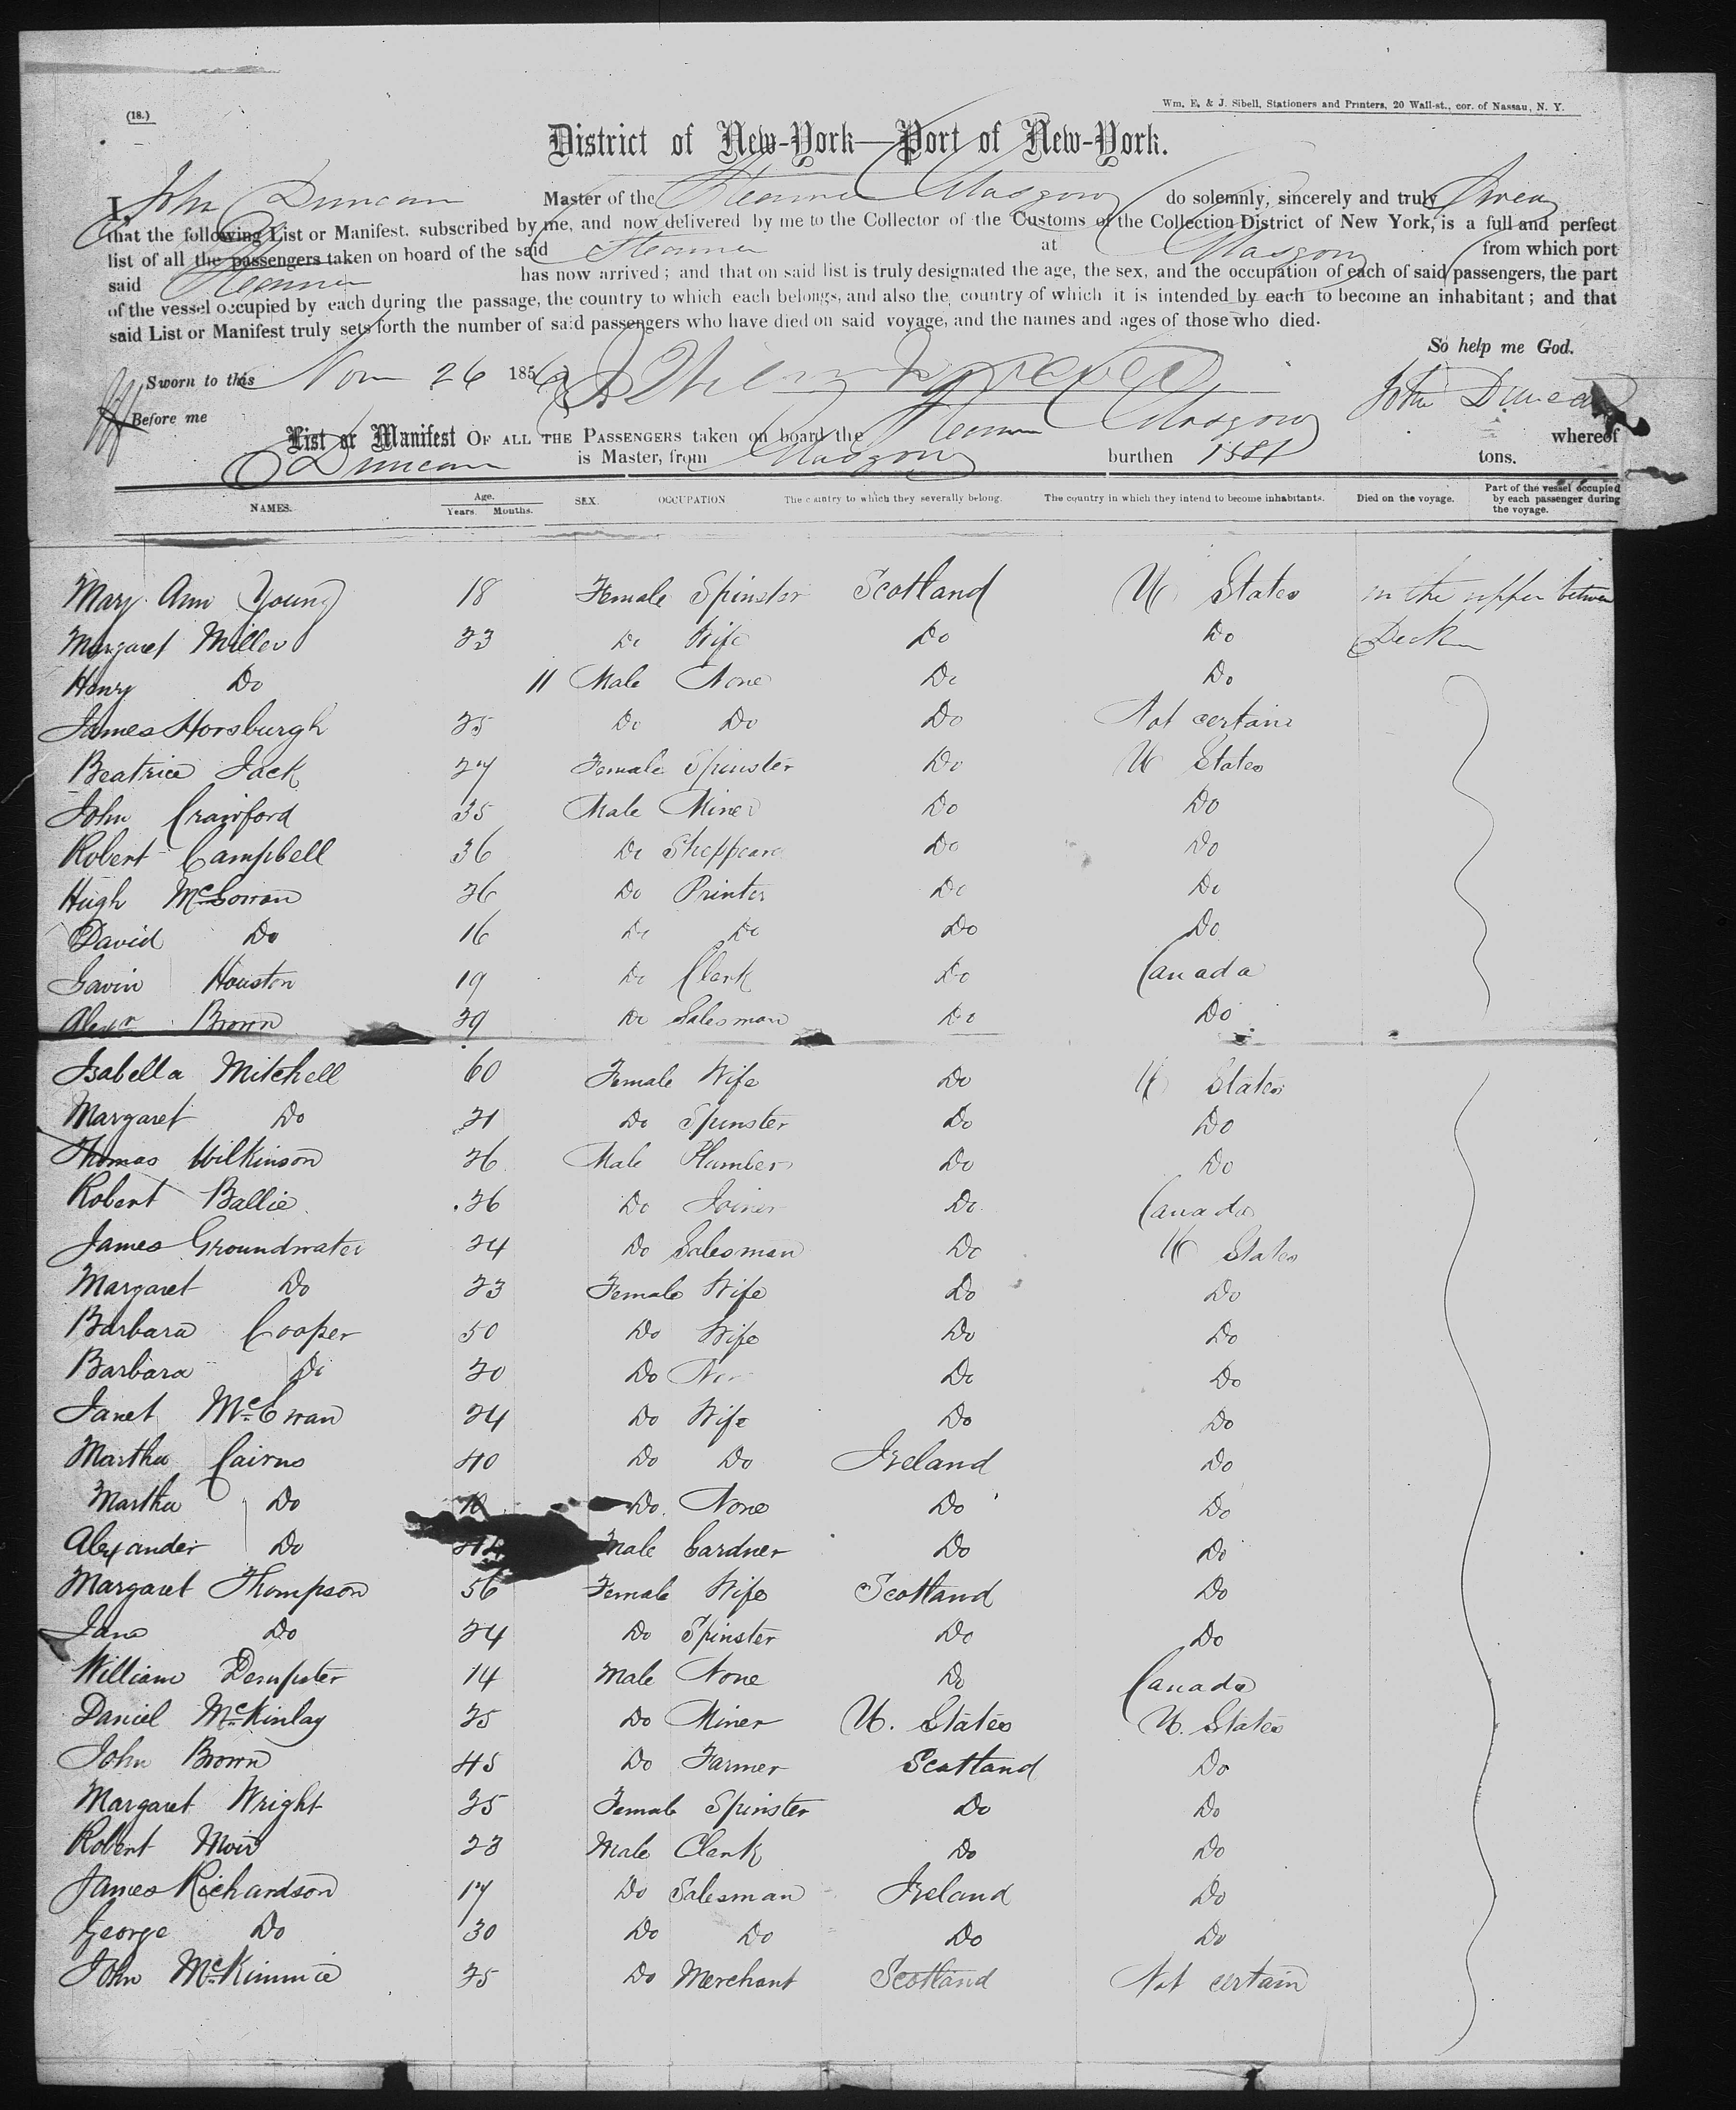 (18.)
Wm. E. & J. Sibell, Stationers and Printers, 20 Wall-st., cor. of Nassau, N. Y.
District of New-York—Port of New-York.
I, John Duncan Master of the Steamer Glasgow do solemnly, sincerely and truly Swear
that the following List or Manifest, subscribed by me, and now delivered by me to the Collector of the Customs of the Collection District of New York, is a full and perfect
list of all the passengers taken on board of the said Steamer at Glasgow from which port
said Steamer has now arrived; and that on said list is truly designated the age, the sex, and the occupation of each of said passengers, the part
of the vessel occupied by each during the passage, the country to which each belongs, and also the country of which it is intended by each to become an inhabitant; and that
said List or Manifest truly sets forth the number of said passengers who have died on said voyage, and the names and ages of those who died.
So help me God.
Sworn to this Nov 26 1856
John Duncan
Before me
List or Manifest OF ALL THE PASSENGERS taken on board the Steamer Glasgow whereof
Duncan is Master, from Glasgow burthen tons.
NAMES. Age. Years. Months. SEX. OCCUPATION The country to which they severally belong. The country in which they intend to become inhabitants. Died on the voyage. Part of the vessel occupied by each passenger during the voyage.
Mary Ann Young 18 Female Spinster Scotland U States in the upper between
Margaret Miller 23 Do Wife Do Do Deck
Henry Do 11 Male None Do Do
James Horsburgh 25 Do Do Do Not certain
Beatrice Jack 27 Female Spinster Do U States
John Crawford 35 Male Miner Do Do
Robert Campbell 36 Do Sheppard Do Do
Hugh McGowan 26 Do Printer Do Do
David Do 16 Do Do Do Do
Gavin Houston 19 Do Clerk Do Canada
Alexr Brown 29 Do Salesman Do Do
Isabella Mitchell 60 Female Wife Do U States
Margaret Do 21 Do Spinster Do Do
Thomas Wilkinson 26 Male Plumber Do Do
Robert Ballie 26 Do Joiner Do Canada
James Groundwater 24 Do Salesman Do U States
Margaret Do 23 Female Wife Do Do
Barbara Cooper 50 Do Wife Do Do
Barbara Do 20 Do Do Do
Janet McEwan 24 Do Wife Do Do
Martha Cairns 40 Do Do Ireland Do
Martha Do 10 Do None Do Do
Alexander Do Male Gardner Do Do
Margaret Thompson 56 Female Wife Scotland Do
Jane Do 24 Do Spinster Do Do
William Dempster 14 Male None Do Canada
Daniel McKinlay 25 Do Miner U. States U. States
John Brown 45 Do Farmer Scotland Do
Margaret Wright 25 Female Spinster Do Do
Robert Moir 23 Male Clerk Do Do
James Richardson 17 Do Salesman Ireland Do
George Do 30 Do Do Do Do
John McKimmie 25 Do Merchant Scotland Not certain